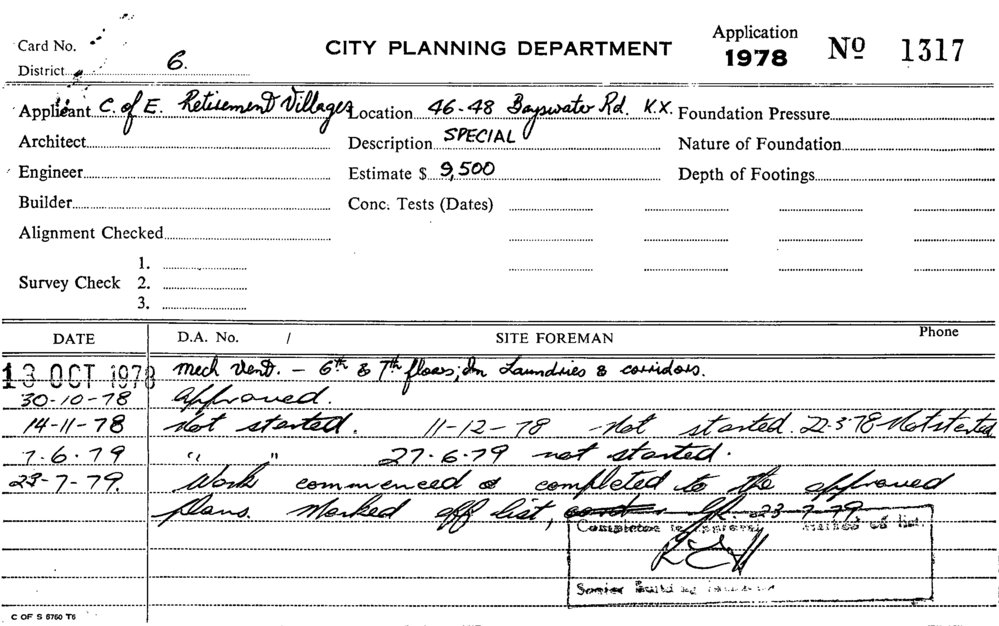 Card No.
CITY PLANNING DEPARTMENT
Application
1978 Nº 1317
District 6.
Applicant C. of E. Retirement Villages Location 46-48 Bayswater Rd. K.X. Foundation Pressure
Architect Description SPECIAL Nature of Foundation
Engineer Estimate $ 9,500 Depth of Footings
Builder Conc. Tests (Dates)
Alignment Checked
1.
Survey Check 2.
3.
DATE D.A. No. / SITE FOREMAN Phone
13 OCT 1978 Mech Vent. - 6th & 7th floors; in Laundries & corridors.
30-10-78 Approved.
14-11-78 Not started. 11-12-78 Not started. 22-3-78 Not started
7.6.79 " " 27.6.79 not started.
23-7-79. Work commenced & completed to the approved
plans. Marked off list, 23-7-79
Completed to Approval Marked off list.
Senior Building
C OF S 6760 T6